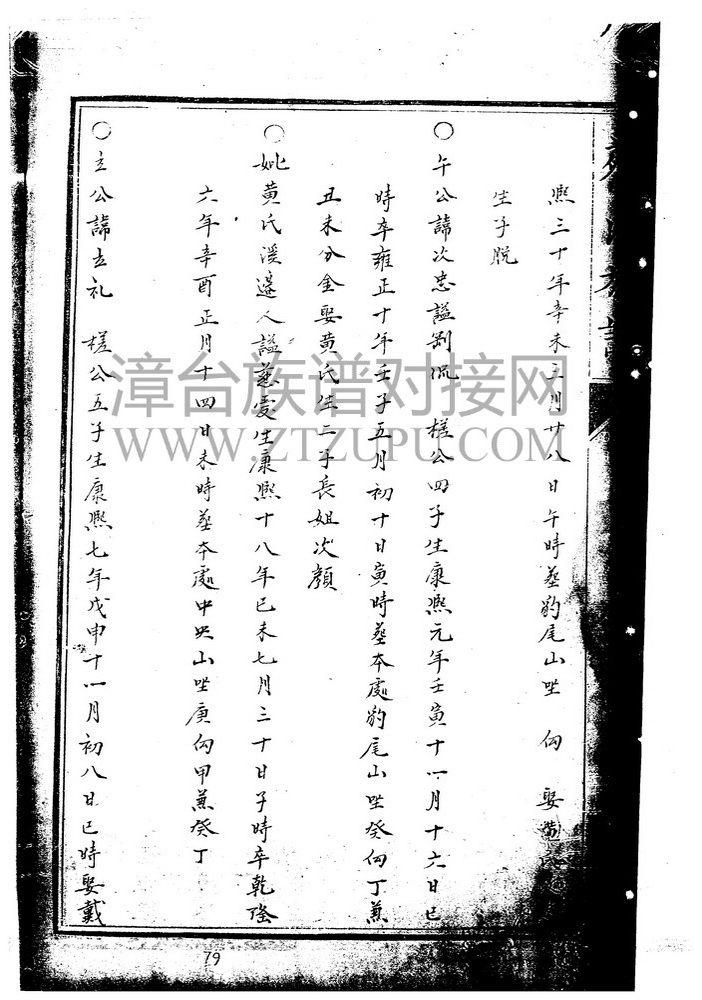 熙三十年辛未三月廿八日午時葬豹尾山坐 向 娶黃
生子脫
○午公諱次忠謚剛侃 槎公四子生康熙元年壬寅十一月十六日巳
時卒雍正十年壬子五月初十日寅時葬本處豹尾山坐癸向丁兼
丑未分金娶黃氏生二子長姐次顏
○妣黃氏溪邊人謚慈愛生康熙十八年己未七月三十日子時卒乾隆
六年辛酉正月十四日未時葬本處中央山坐庚向甲兼癸丁
○立公諱立礼 槎公五子生康熙七年戊申十一月初八日巳時娶戴
79
漳台族谱对接网
WWW.ZTZUPU.COM